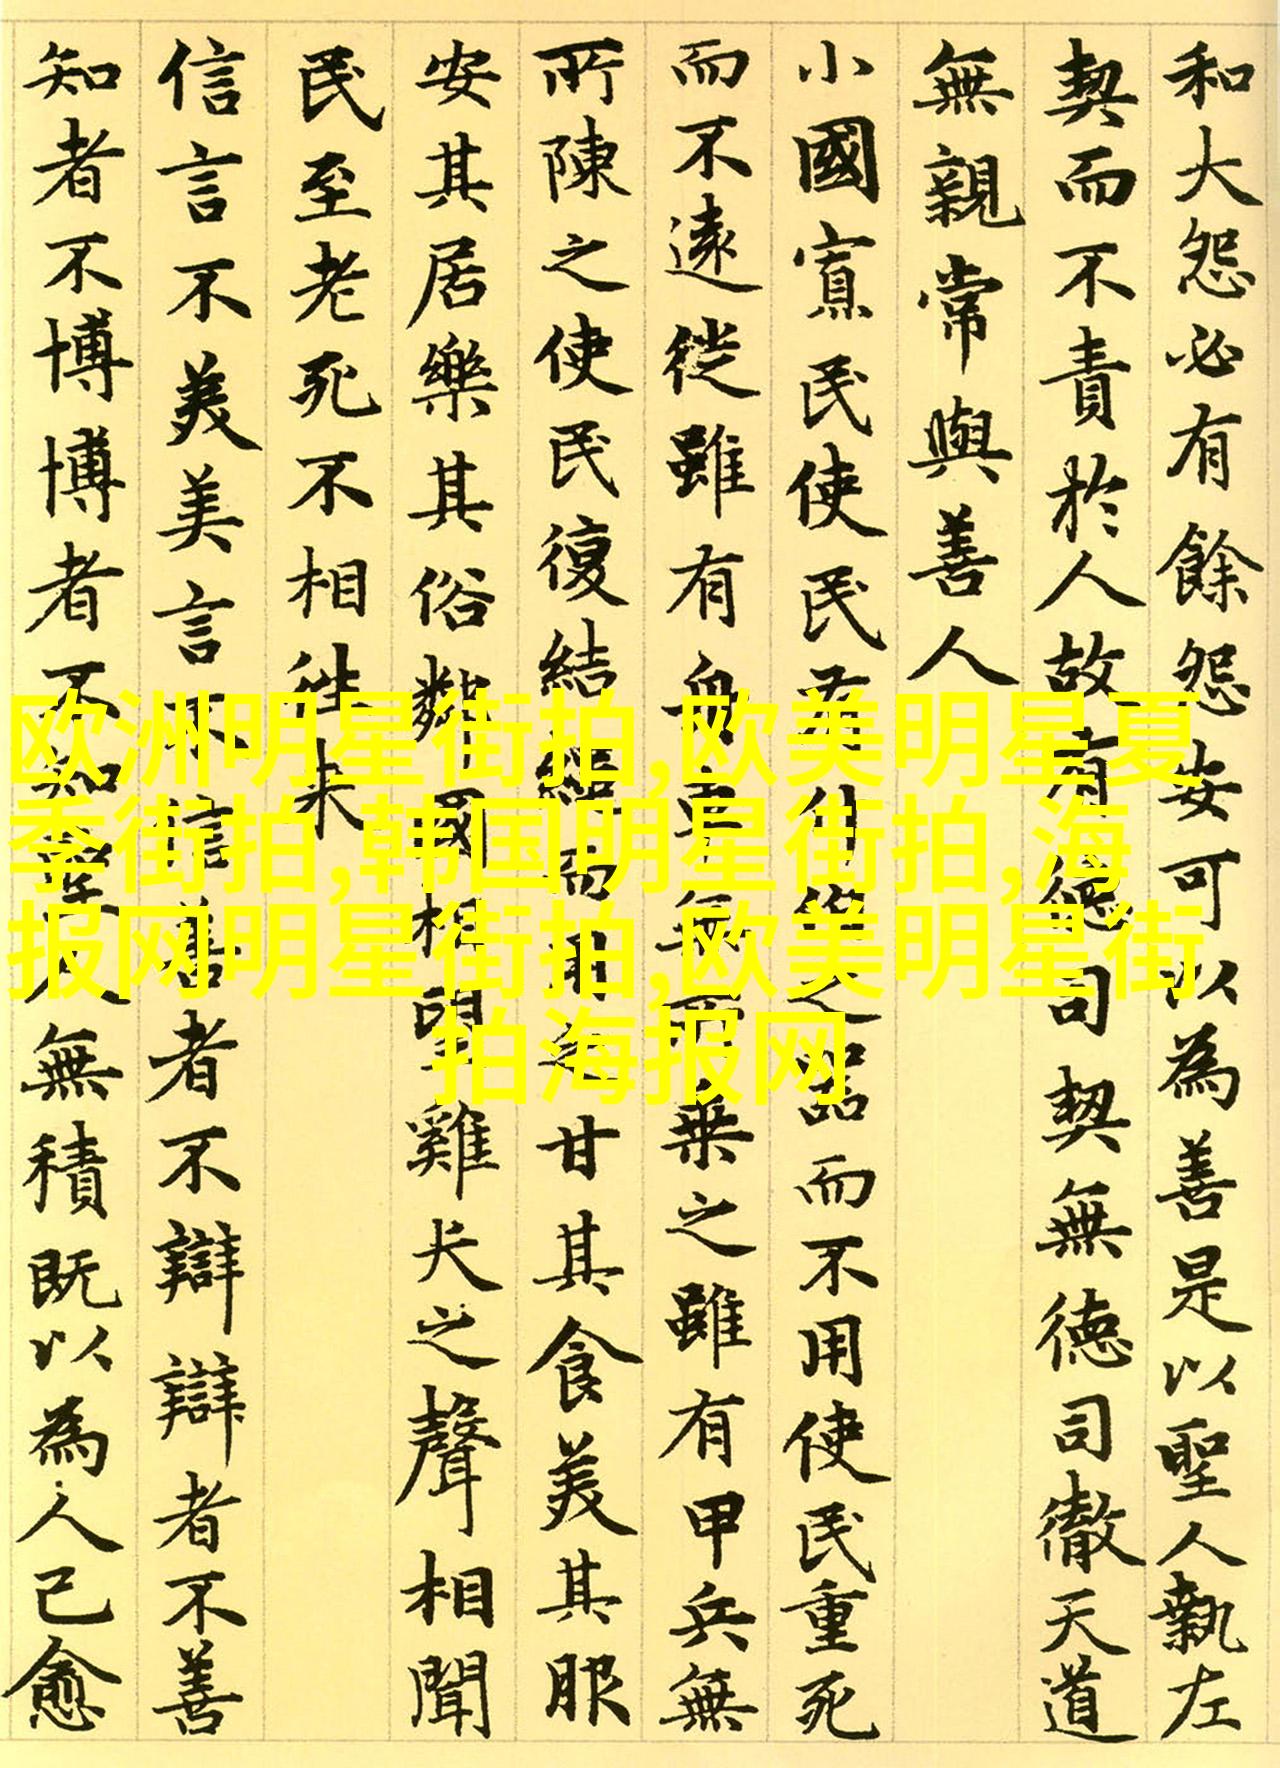 和大怨必有餘怨安可以為善是以聖人執左
契而不責於人故有德司契無德司徹天道
無親常與善人
小國寡民使民有什伯之器而不用使民重死
而不遠徙雖有舟車無所乗之雖有甲兵無
所陳之使民復結繩而用之甘其食美其服
安其居樂其俗鄰國相望雞犬之聲相聞
民至老死不相往来
信言不美美言不信善者不辯辯者不善
知者不博博者不知聖人無積既以為人己愈
欧洲明星街拍,欧美明星夏
季街拍,韩国明星街拍,海
报网明星街拍,欧美明星街
拍海报网